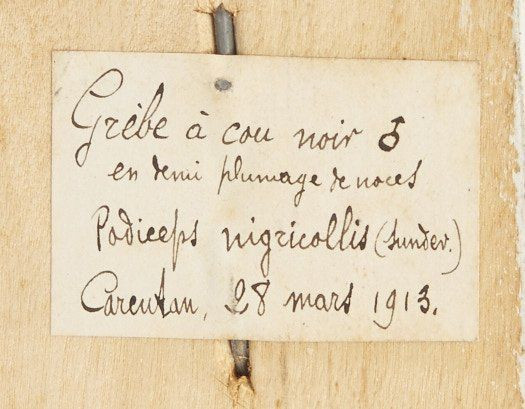 Grèbe à cou noir ♂
en demi plumage de noces
Podiceps nigricollis (Sundev.)
Carentan, 28 mars 1913.